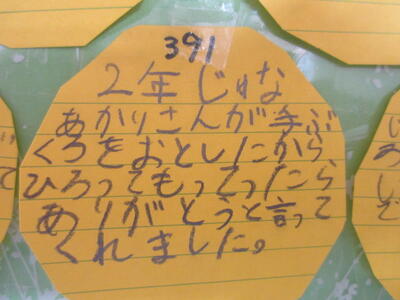 391
2年じゅな
あかりさんが手ぶ
くろをおとしたから
ひろってもってったら
ありがとうと言って
くれました。